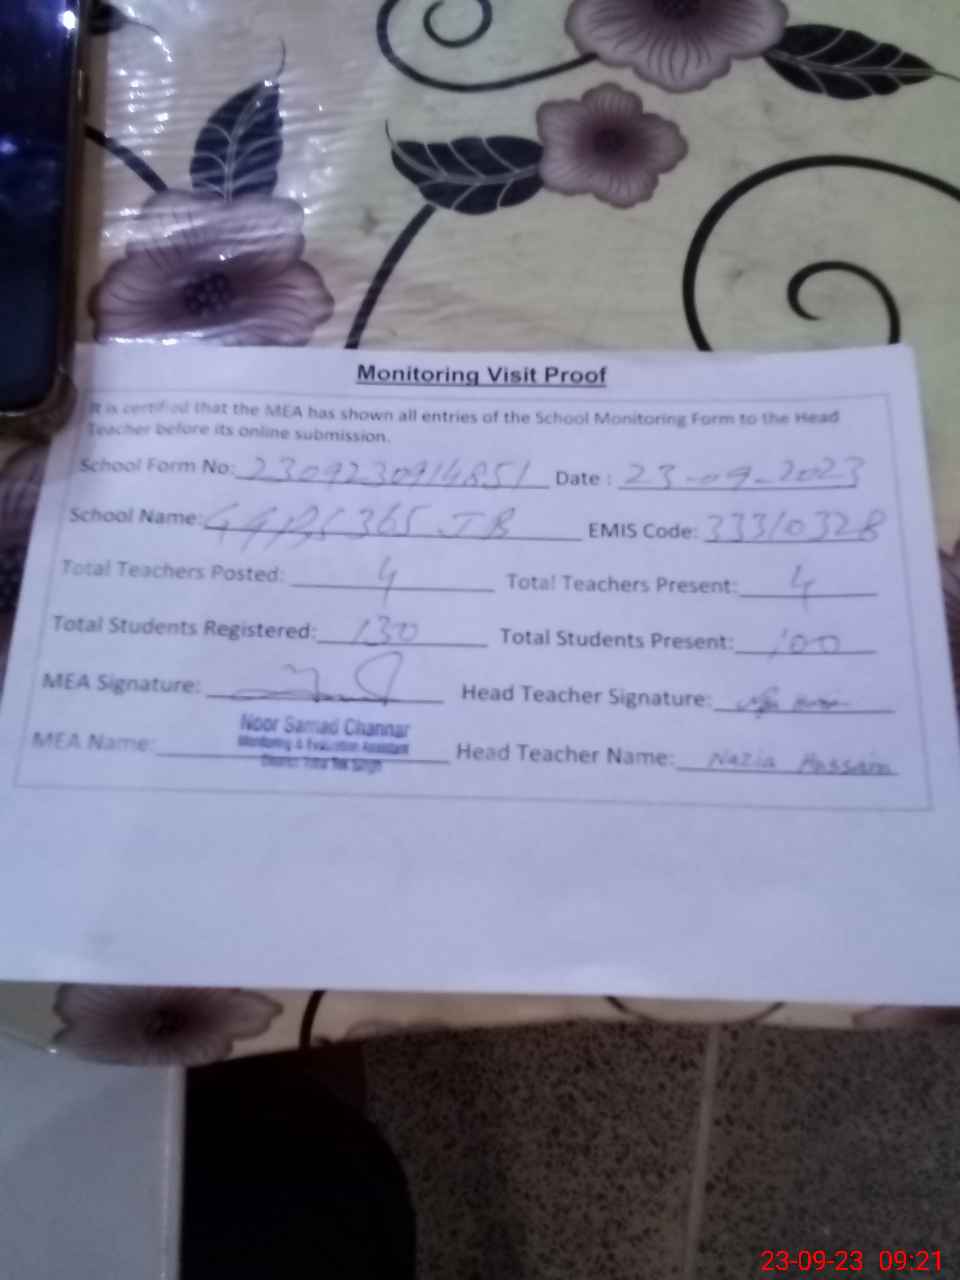 Monitoring Visit Proof
It is certified that the MEA has shown all entries of the School Monitoring Form to the Head
Teacher before its online submission.
School Form No: 2309230914851 Date : 23-09-2023
School Name: 365 JB EMIS Code: 33310328
Total Teachers Posted: 4 Total Teachers Present: 4
Total Students Registered: 130 Total Students Present: 100
MEA Signature: Head Teacher Signature:
Noor Samad Channar
Monitoring & Evaluation Assistant
MEA Name: Head Teacher Name: Nazia Hassain
District Toba Tek Singh
23-09-23 09:21